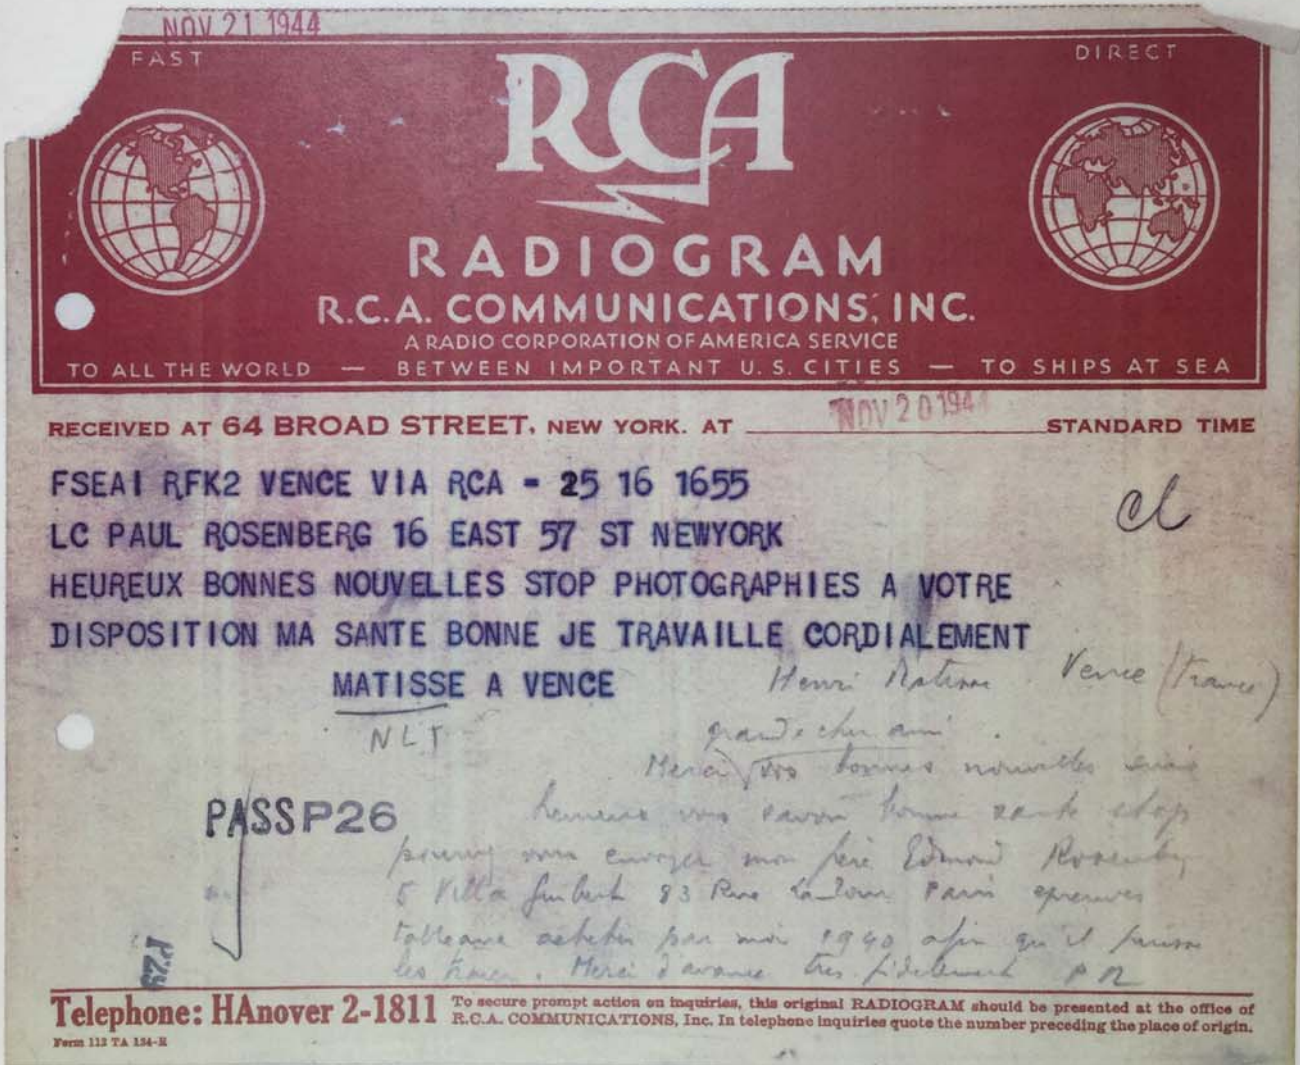 NOV 21 1944
FAST
DIRECT
RCA
RADIOGRAM
R.C.A. COMMUNICATIONS, INC.
A RADIO CORPORATION OF AMERICA SERVICE
TO ALL THE WORLD — BETWEEN IMPORTANT U. S. CITIES — TO SHIPS AT SEA
NOV 20 1944
RECEIVED AT 64 BROAD STREET, NEW YORK. AT STANDARD TIME
FSEA1 RFK2 VENCE VIA RCA = 25 16 1655
LC PAUL ROSENBERG 16 EAST 57 ST NEWYORK
HEUREUX BONNES NOUVELLES STOP PHOTOGRAPHIES A VOTRE
DISPOSITION MA SANTE BONNE JE TRAVAILLE CORDIALEMENT
MATISSE A VENCE
Henri Matisse Vence (France)
NLT
grand cher ami
Merci vos bonnes nouvelles suis
heureux vous savoir bonne sante stop
PASSP26
vous envoyer mon frère Edmond Rosenberg
5 Villa Guibert 83 Rue La Tour Paris epreuves
tableaux achetés par moi 1940 afin qu'il puisse
les. Merci d'avance très fidèlement PR
P23
Telephone: HAnover 2-1811
To secure prompt action on inquiries, this original RADIOGRAM should be presented at the office of
R.C.A. COMMUNICATIONS, Inc. In telephone inquiries quote the number preceding the place of origin.
Form 112 TA 134-R